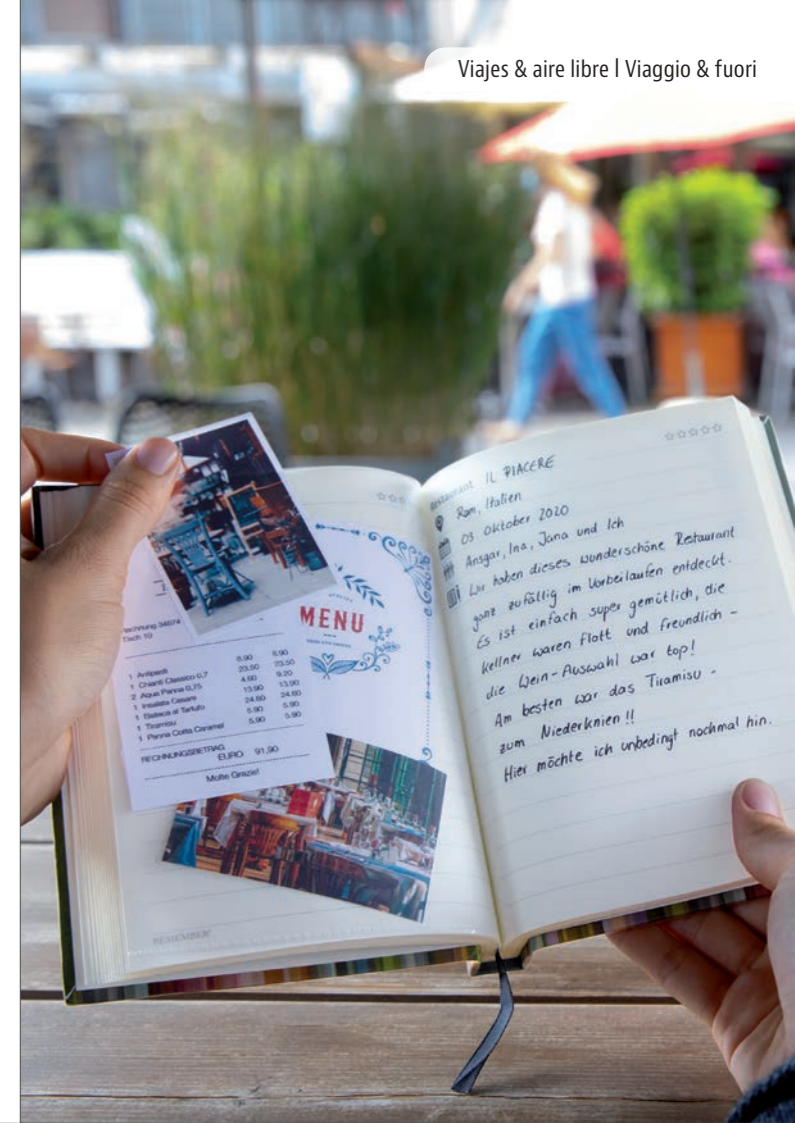 Viajes & aire libre | Viaggio & fuori
Rechnung 34674
Tisch 10
1 Antipasti 8.90 8.90
1 Chianti Classico 0,7 23.50 23.50
2 Aqua Panna 0,75 4.60 9.20
1 Insalata Cesare 13.90 13.90
1 Bisteca al Tartufo 24.60 24.60
1 Tiramisu 5.90 5.90
1 Panna Cotta Caramel 5.90 5.90
RECHNUNGSBETRAG
EURO 91,90
Molte Grazie!
MENU
REMEMBER®
Restaurant IL PIACERE
Rom, Italien
03 Oktober 2020
Ansgar, Ina, Jana und Ich
Wir haben dieses wunderschöne Restaurant
ganz zufällig im Vorbeilaufen entdeckt.
Es ist einfach super gemütlich, die
Kellner waren flott und freundlich -
die Wein-Auswahl war top!
Am besten war das Tiramisu -
zum Niederknien!!
Hier möchte ich unbedingt nochmal hin.